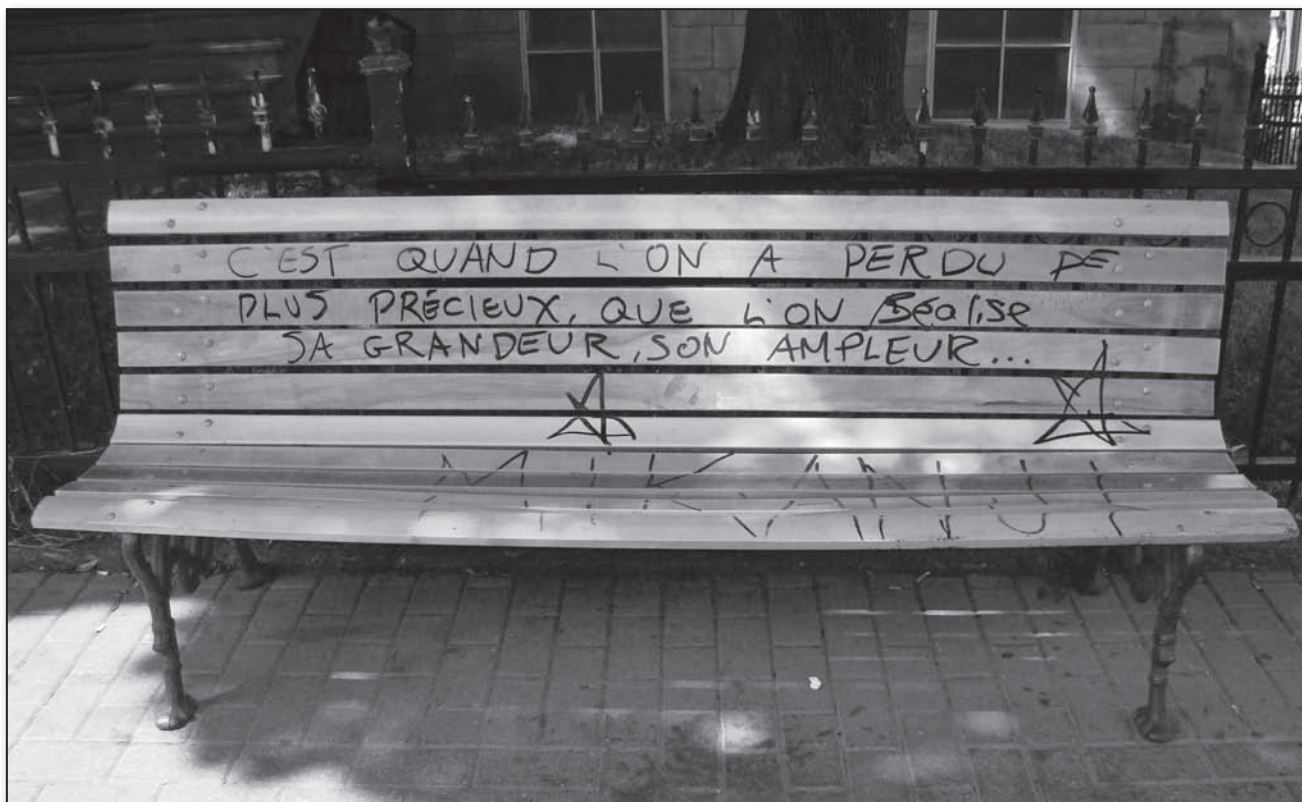 C'EST QUAND L'ON A PERDU DE
PLUS PRÉCIEUX, QUE L'ON Réalise
SA GRANDEUR, SON AMPLEUR...